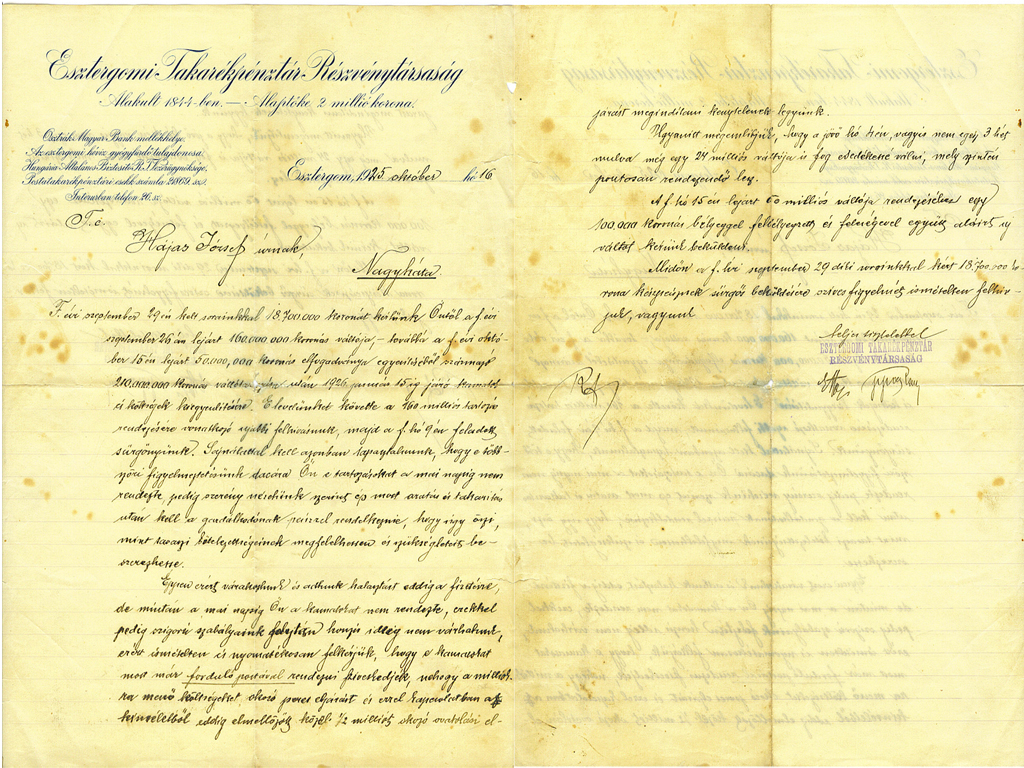 Esztergomi-Takarékpénztár-Részvénytársaság
Alakult 1844-ben. — Alaptőke 2 millió korona.
Osztrák-Magyar Bank mellékhelye.
Az esztergomi hévíz gyógyfürdő tulajdonosa.
Hungária Általános Biztosító R.T. főügynöksége.
Postatakarékpénztári csekk számla 25869. sz.
Interurban telefon 26. sz.
Esztergom, 1925 október hó 16
T. c.
Hájas József úrnak,
Nagyháta.
F. évi szeptember 29én kelt sorainkkal 18,700.000 koronát kértünk Öntől a f. évi
szeptember 26án lejárt 160.000.000 koronás váltója, – továbbá a f. évi októ-
ber 15én lejárt 50,000,000 koronás elfogadványa egyesítéséből származó
210.000.000 koronás váltó után 1926 január 15ig járó kamatok
és költségek kiegyenlítésére. E levelünket követte a 160 milliós tartozás
rendezésére vonatkozó felhívásunk, majd a f. hó 9én feladott
sürgönyünk. Sajnálattal kell azonban tapasztalnunk, hogy e több-
szöri figyelmeztetésünk dacára Ön e tartozásokat a mai napig nem
rendezte, pedig szerény nézetünk szerint ép most aratás és takarítás
után kell a gazdálkodónak pénzzel rendelkeznie, hogy úgy őszi,
mint tavaszi kötelezettségeinek megfelelhessen és szükségleteit be-
szerezhesse.
Éppen ezért várakoztunk és adtunk halasztást eddig a fizetésre,
de miután a mai napig Ön a kamatokat nem rendezte, ezekkel
pedig szigorú szabályaink folytán hosszú ideig nem várhatunk,
ezért ismételten és nyomatékosan felkérjük, hogy e kamatokat
most már forduló postával rendezni szíveskedjék, nehogy a milliók-
ra menő költségeket okozó peres eljárást és ezzel kapcsolatban a
kíméletből eddig elmellőzött közel 1/2 milliót okozó óvatolási el-
járást megindítani kénytelenek legyünk.
Ugyanitt megemlítjük, hogy a jövő hó 4én, vagyis nem egész 3 hét
mulva még egy 24 milliós váltója is fog esedékessé válni, mely szintén
pontosan rendezendő lesz.
A f. hó 15én lejárt 50 milliós váltója rendezésére egy
100,000 koronás bélyeggel felbélyegzett és feleségével együtt aláírt új
váltót kérünk beküldeni.
Midőn a f. évi szeptember 29 diki sorainkkal kért 18.700.000 ko-
rona készpénznek sürgős beküldésére szíves figyelmét ismételten felhív-
juk, vagyunk
teljes tisztelettel
ESZTERGOMI TAKARÉKPÉNZTÁR
RÉSZVÉNYTÁRSASÁG